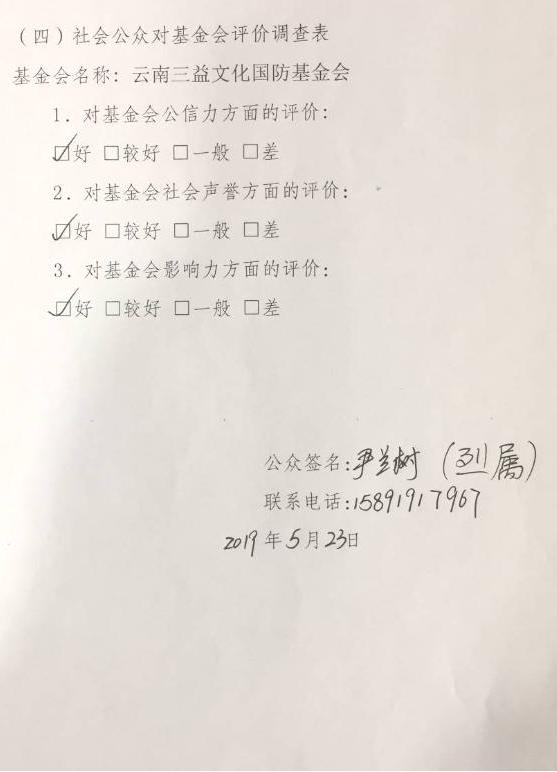 （四）社会公众对基金会评价调查表
基金会名称：云南三益文化国防基金会
1．对基金会公信力方面的评价：
☑好 □较好 □一般 □差
2．对基金会社会声誉方面的评价：
☑好 □较好 □一般 □差
3．对基金会影响力方面的评价：
☑好 □较好 □一般 □差
公众签名：严兰树（烈属）
联系电话：15891917967
2019年5月23日